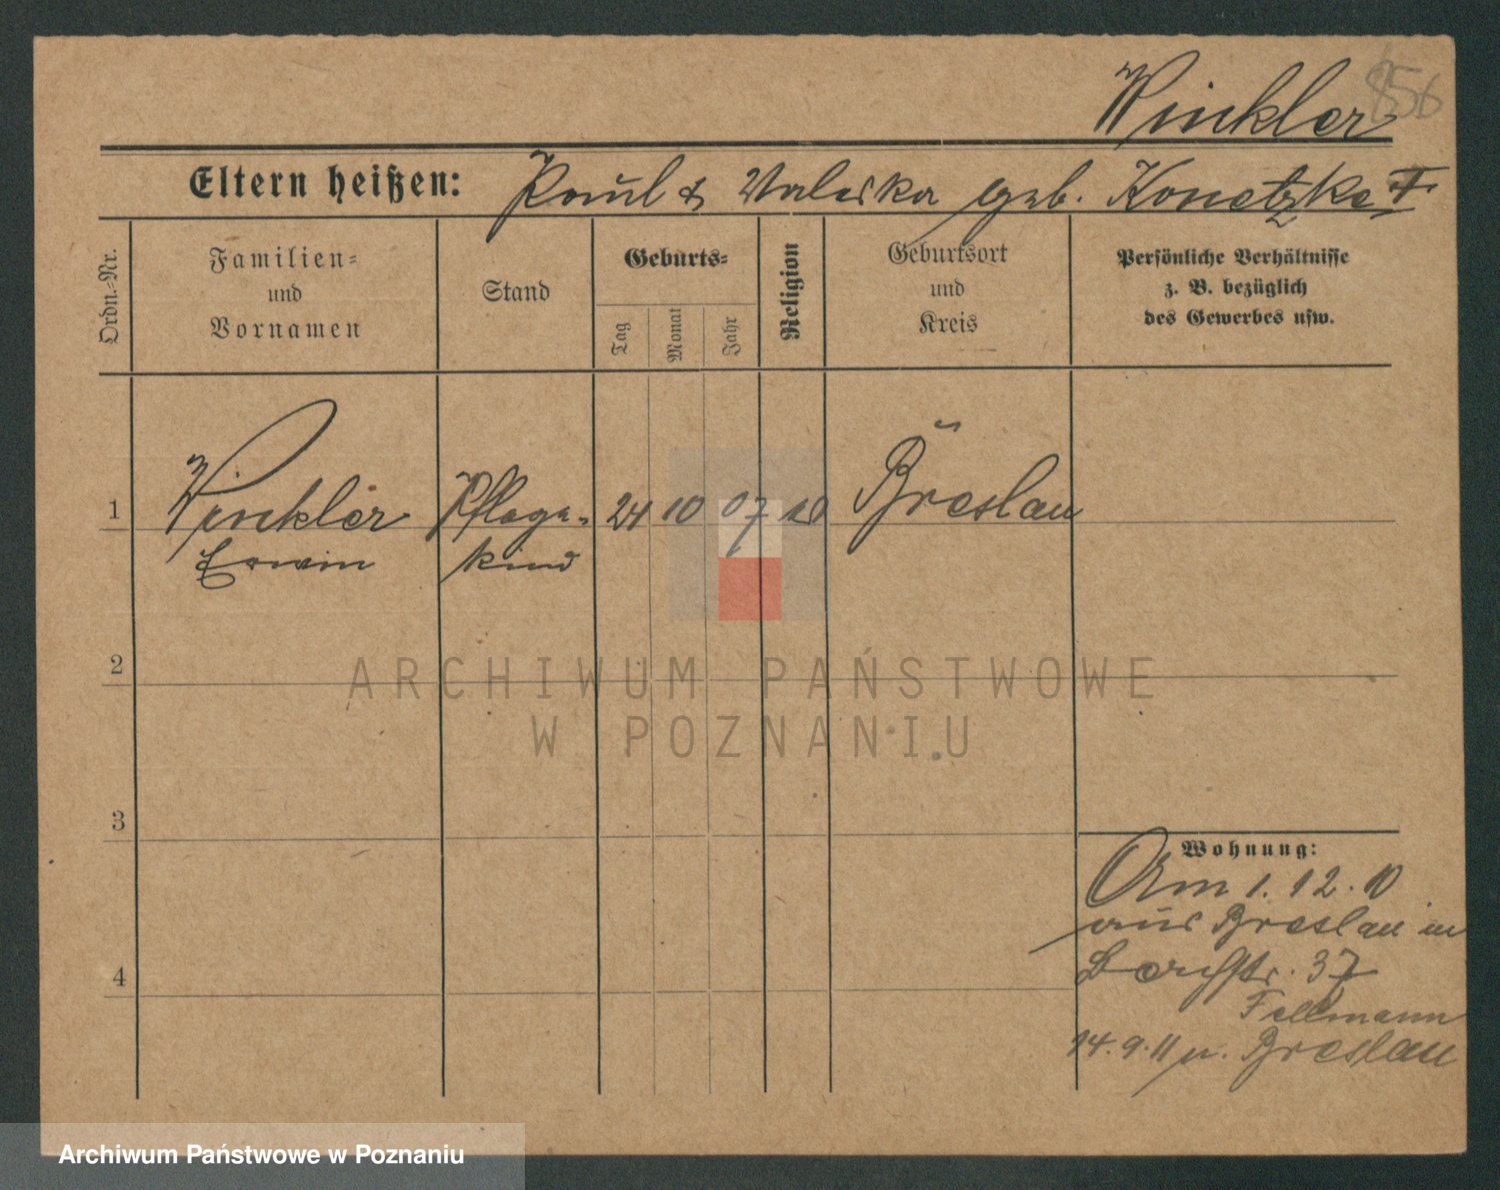 Winkler
856
Eltern heißen: Paul & Valeska geb. Konetzke
Ordn.-Nr.
Familien- und Vornamen
Stand
Geburts-
Tag
Monat
Jahr
Religion
Geburtsort und Kreis
Persönliche Verhältnisse
z. B. bezüglich
des Gewerbes usw.
1 Winkler Pflege- 24 10 07 Breslau
Erwin kind
2
3
4
Wohnung:
Am 1. 12. 10
aus Breslau in
37
Fellmann
14. 9. 11 n. Breslau
ARCHIWUM PAŃSTWOWE
W POZNANIU
Archiwum Państwowe w Poznaniu